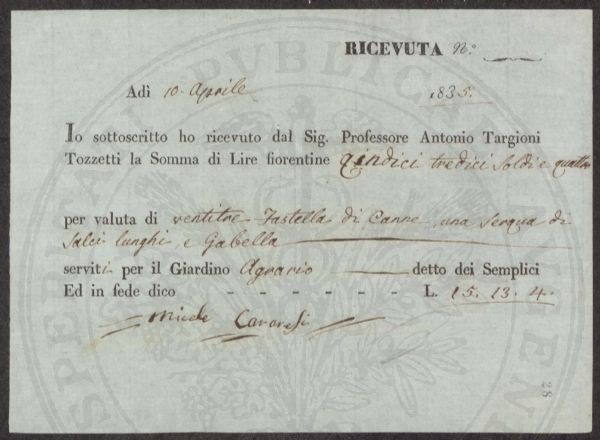 RICEVUTA N.°
Adì 10. Aprile 1835.
Io sottoscritto ho ricevuto dal Sig. Professore Antonio Targioni
Tozzetti la Somma di Lire fiorentine Qindici tredici Soldi e quattro
per valuta di ventitre Fastella di Canne, una Serqua di
Salci lunghi e Gabella
serviti per il Giardino Agrario detto dei Semplici
Ed in fede dico - - - - - - L. 15. 13. 4.
28